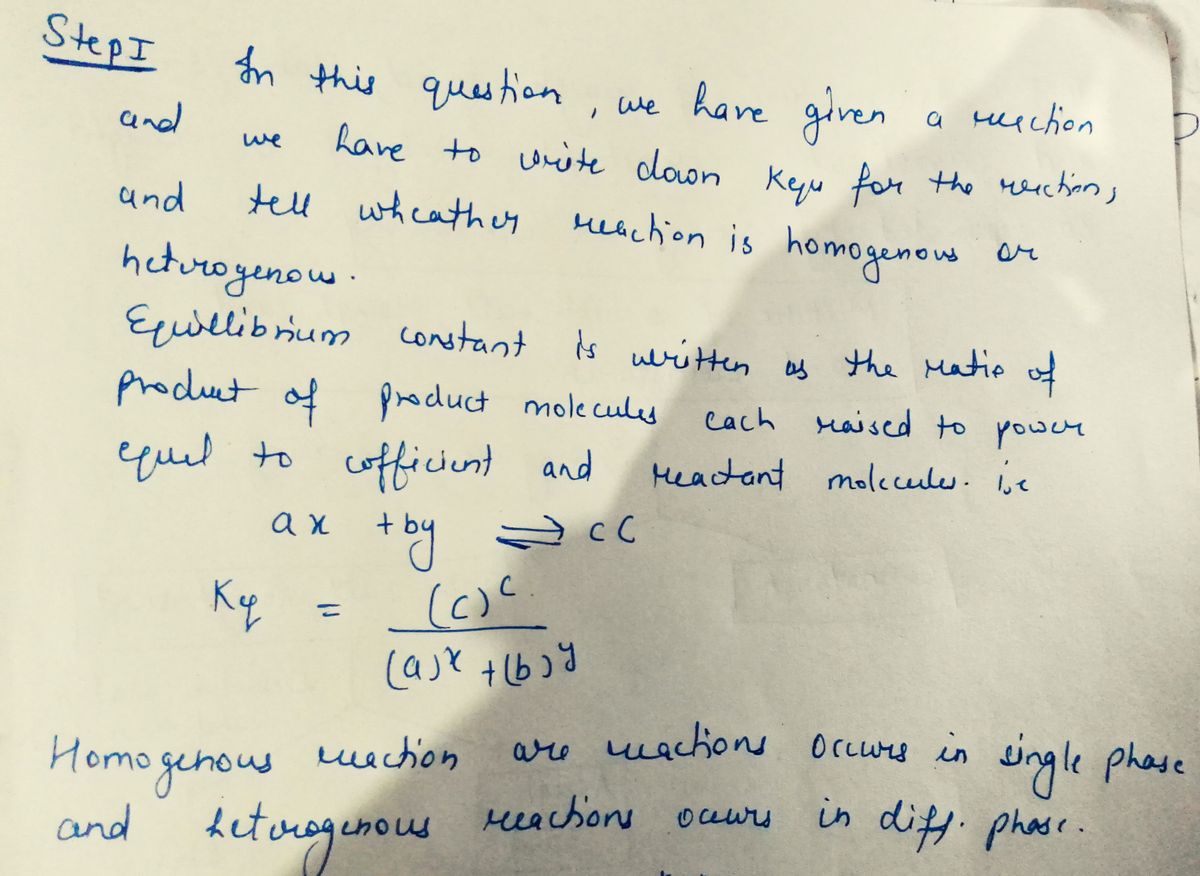 Step I In this question, we have given a reaction
and we have to write down Kequ for the reaction,
and tell wheather reaction is homogenous or
heterogenous.
Equillibrium constant is written as the ratio of
product of product molecules each raised to power
equal to cofficient and reactant molecules. i.e
ax + by ⇌ cC
Kq = (c)^c
(a)^x + (b)^y
Homogenous reaction are reactions occurs in single phase
and heterogenous reactions occurs in diff. phase.